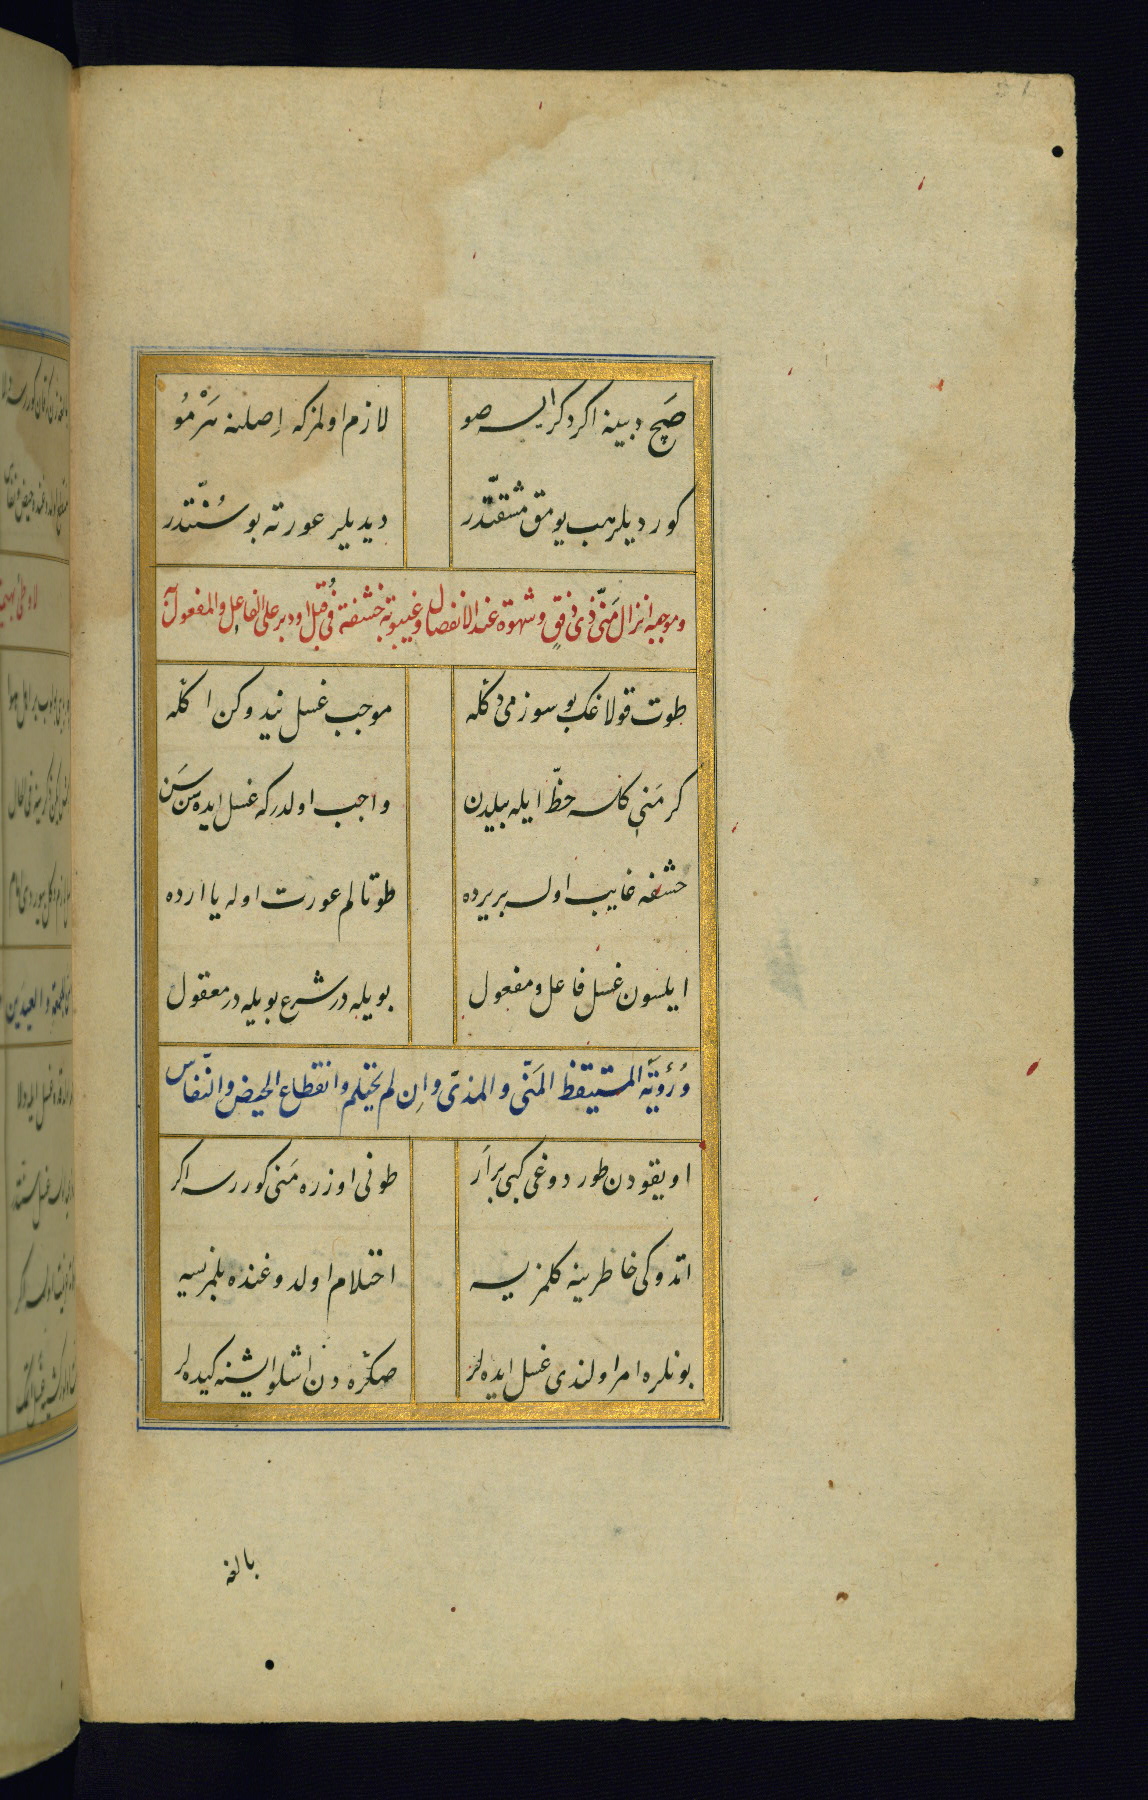 صَچ دبینه اکر دکرایسه صو لازم اولمز که اِصلنه سَرْمُو
کور دیلر هب یومق مشقّتدر دیدیلر عورته بو سُنّتدر
وموجبه انزال مَنّی ذی دَفقٍ وشهوة عند الانفصال وغیبوبة حَشفة فی قُبل او دبر علی الفاعِل والمفعول
طوت قولاغکی بو سوزمی دکله موجب غسل نیدوکن اکله
کر مَنی کلسه حظّ ایله بیلدن واجب اولدر که غسل ایده سن سَن
حشفه غایب اولسه بر یرده طوتالم عورت اوله یا ارده
ایلسون غسل فاعل و مفعول بویله در شرع بویله در معقول
وَرُؤیَة المستیقظ المَنّی والمذیّ واِن لم یحتلم وانقطاع الحیض والنّفاس
اویقودن طوردوغی کبی بر اَر طونی اوزره مَنی کوررسه اکر
اتدوکی خاطرینه کلمزیسه احتلام اولدوغنده بلمزیسه
بونلره امر اولندی غسل ایده لر صکره دن اشلو ایشنه کیده لر
بالغه